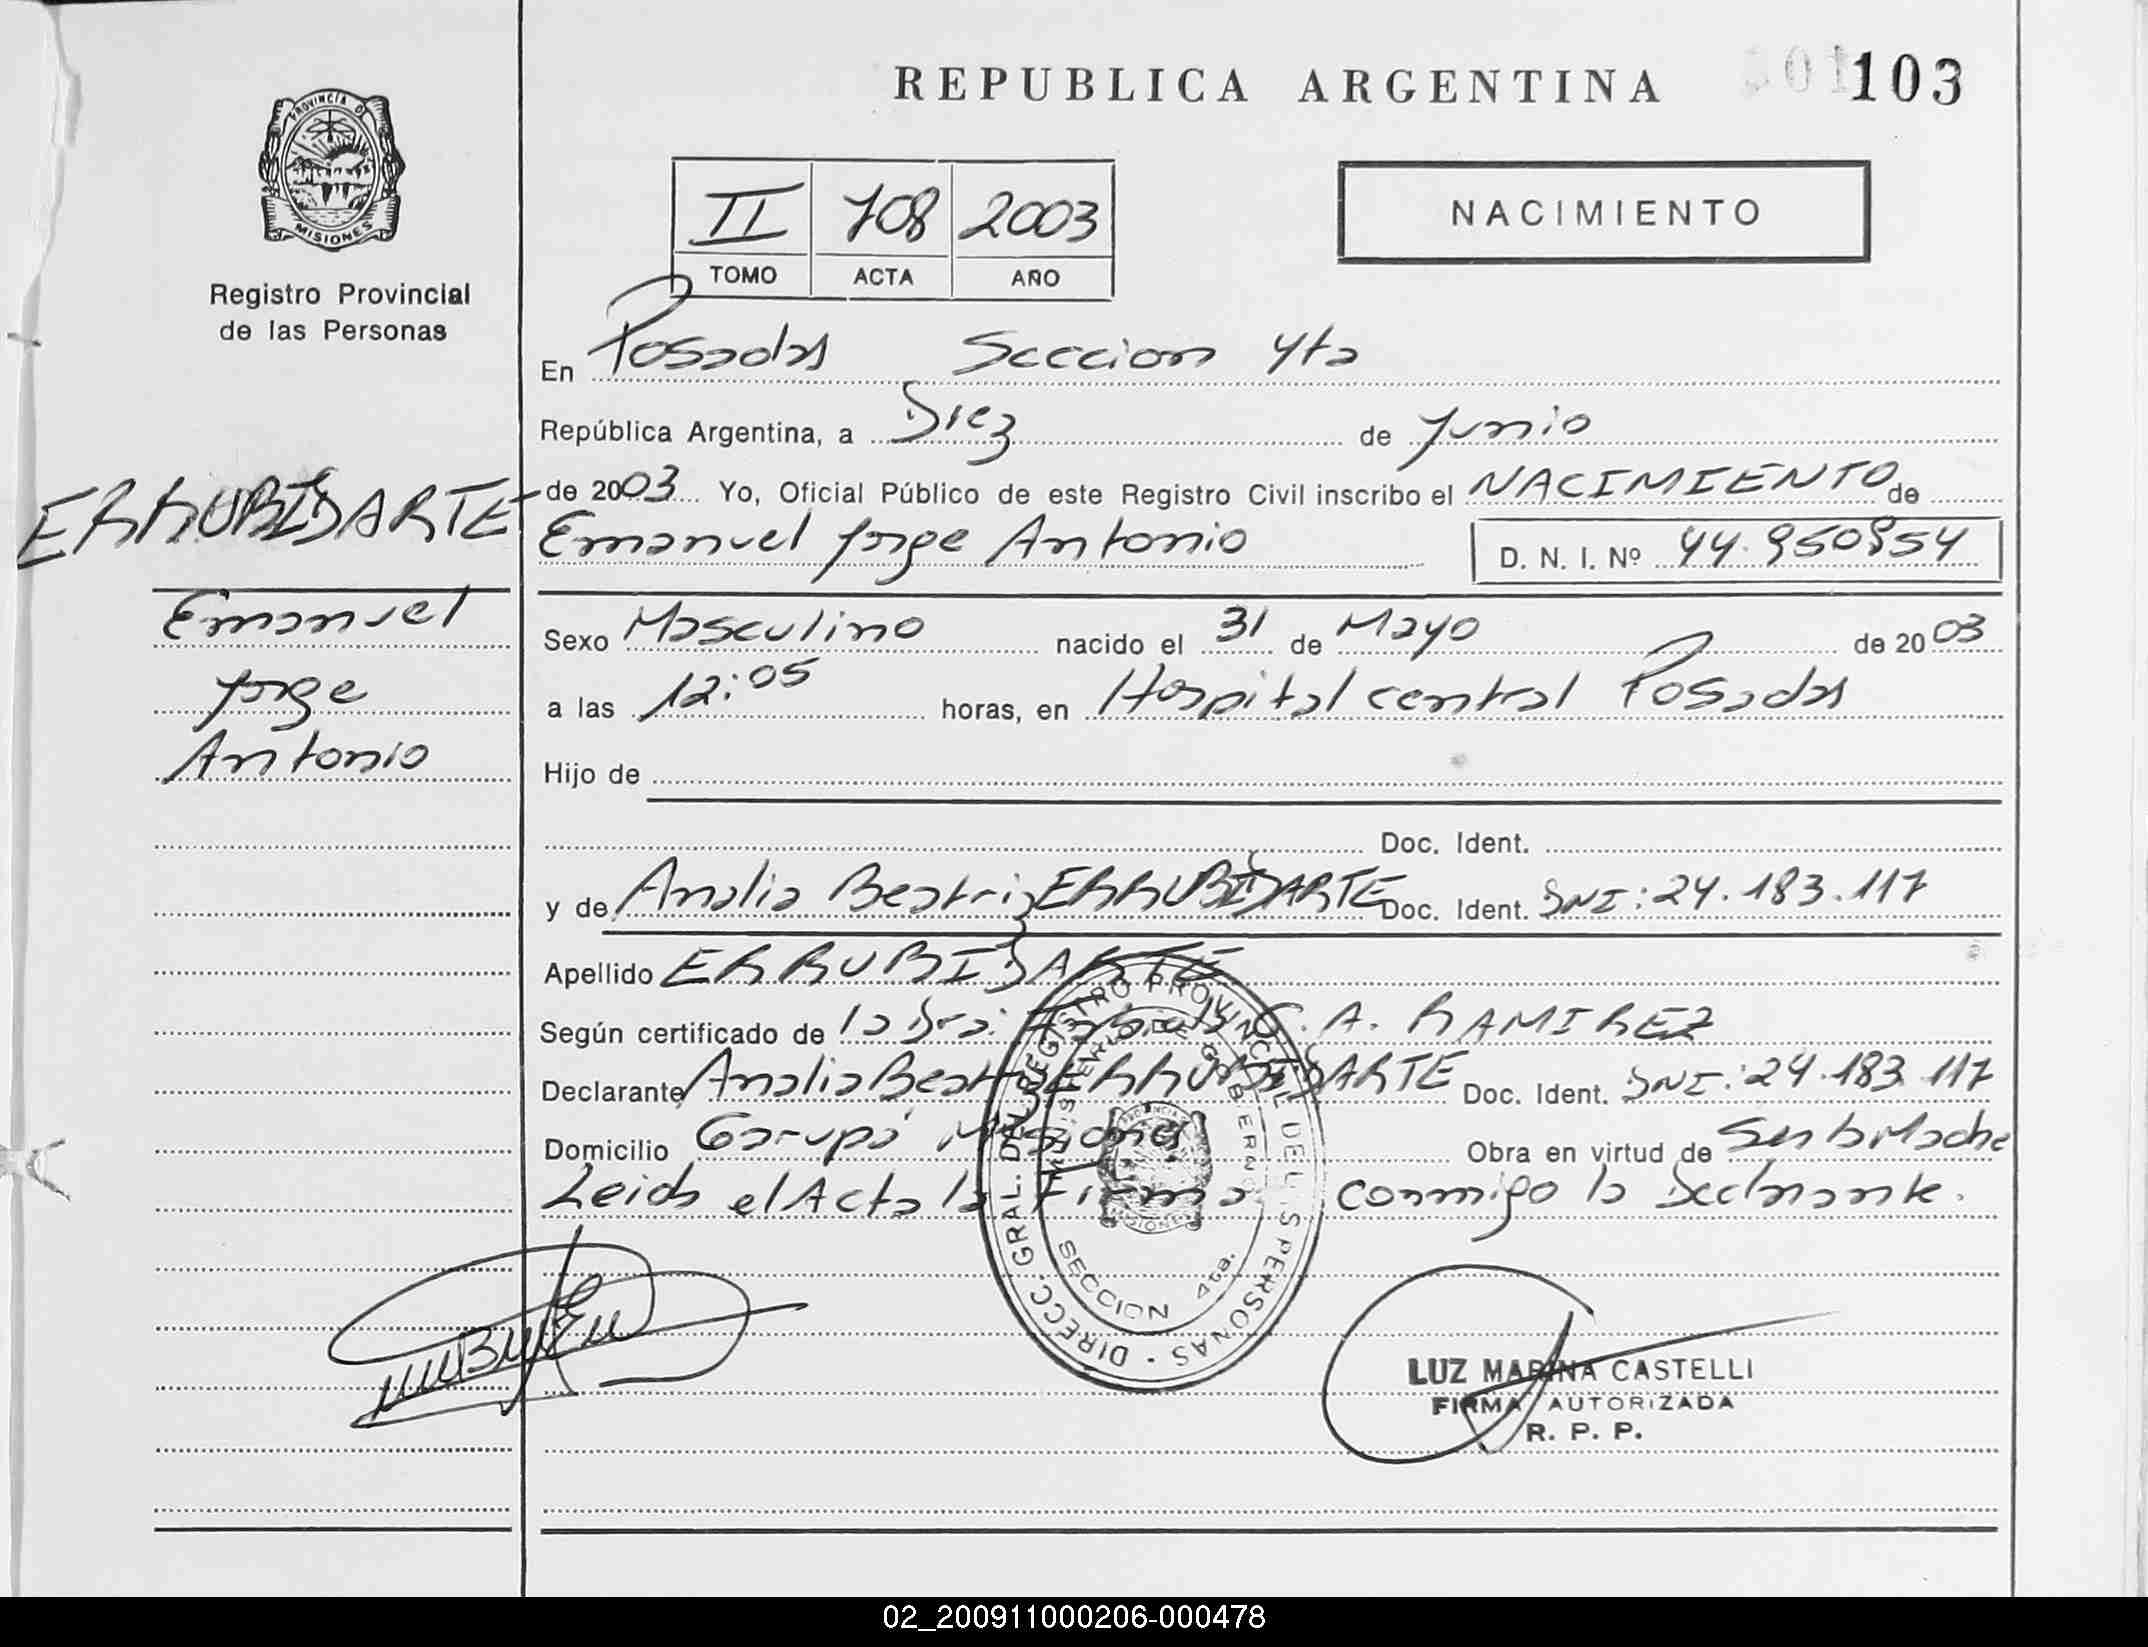 REPUBLICA ARGENTINA
103
PROVINCIA DE
MISIONES
Registro Provincial
de las Personas
II 708 2003
TOMO ACTA AÑO
NACIMIENTO
En Posadas Seccion 4ta
República Argentina, a Diez de Junio
de 2003 Yo, Oficial Público de este Registro Civil inscribo el NACIMIENTO de
ERRUBIDARTE
Emanuel Jorge Antonio D. N. I. Nº 44.950954
Emanuel
Jorge
Antonio
Sexo Masculino nacido el 31 de Mayo de 2003
a las 12:05 horas, en Hospital central Posadas
Hijo de
Doc. Ident.
y de Analia Beatriz ERRUBIDARTE Doc. Ident. DNI: 24.183.117
Apellido ERRUBIDARTE
Según certificado de la Dra: C. A. RAMIREZ
Declarante Analia Beatriz ERRUBIDARTE Doc. Ident. DNI: 24.183.117
Domicilio Garupá Misiones Obra en virtud de Ser la Madre
Leida el Acta la Firma conmigo la Declarante.
DIRECC. GRAL. DEL REGISTRO PROVINCIAL DE LAS PERSONAS
MINISTERIO DE GOBIERNO
SECCION 4ta.
LUZ MARINA CASTELLI
FIRMA AUTORIZADA
R. P. P.
02_200911000206-000478